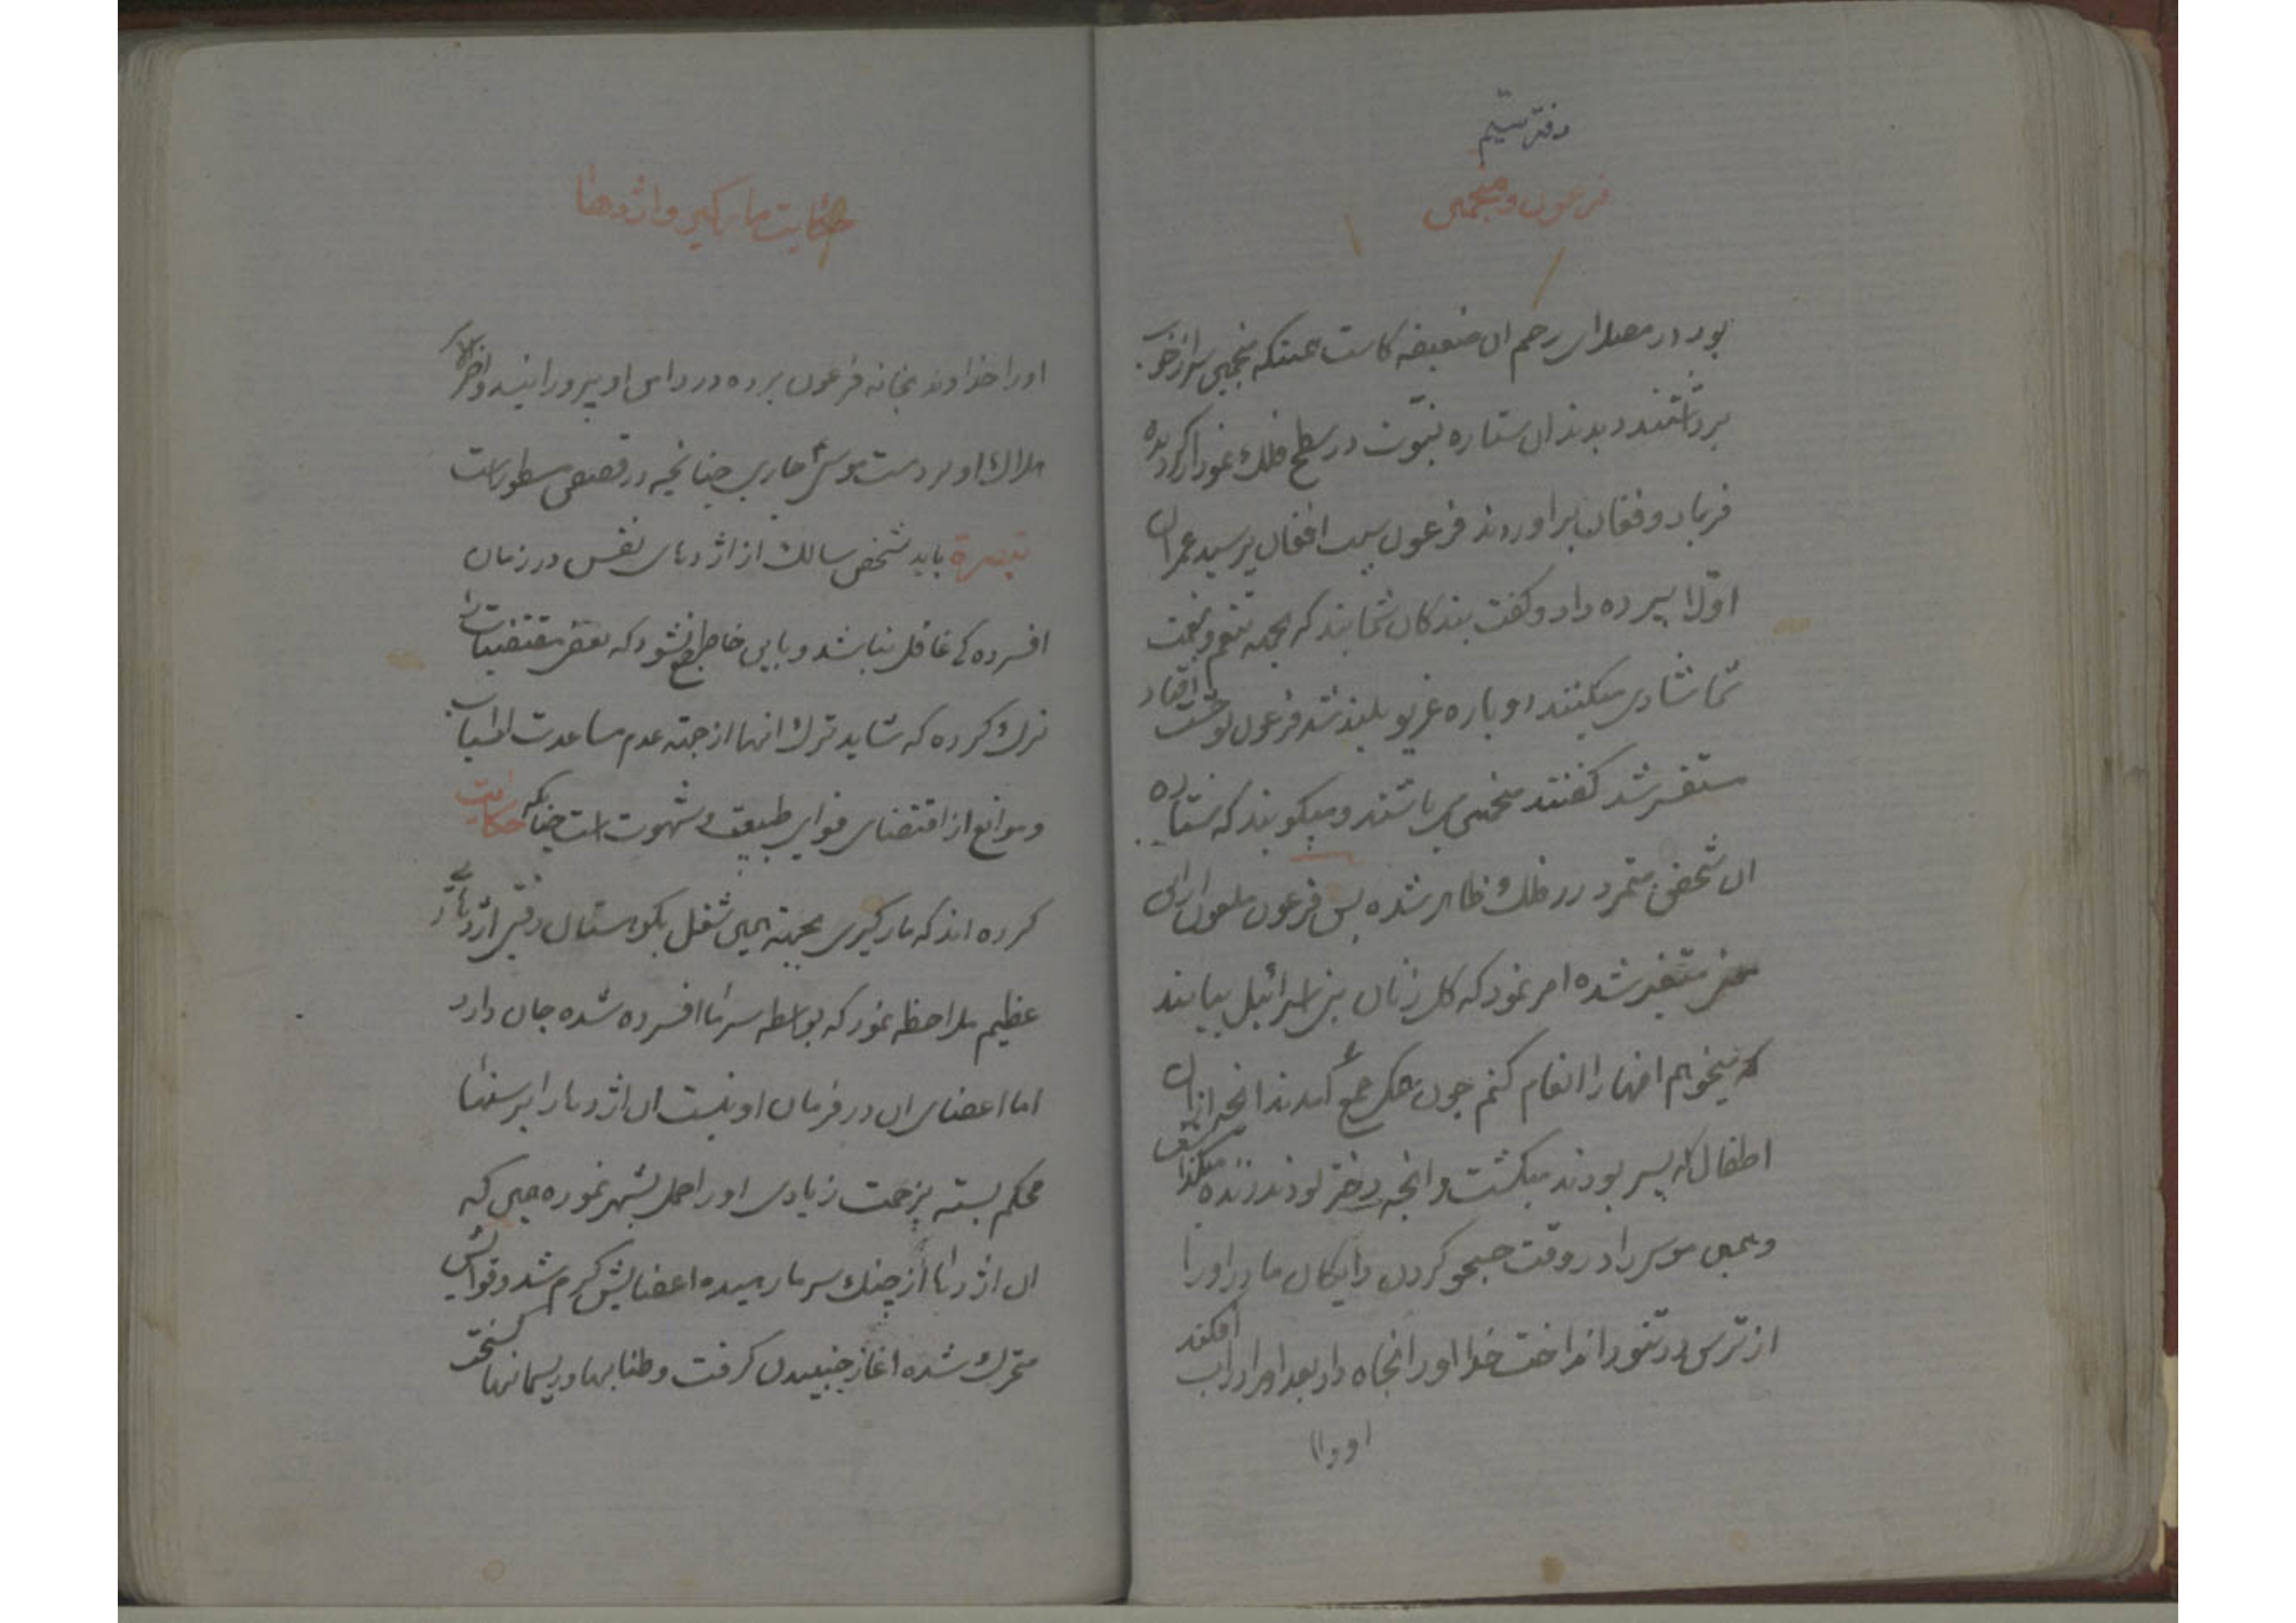 دفتر سیم
فرعون و منجمین
بود در رحم ان ضعیفه کاشت همینکه منجمین سر از خواب
برداشتند دیدند ان ستاره نبوت در سطح فلک نمودار گردیده
فریاد و فغان براوردند فرعون سبب افغان پرسید عمران
اوّلا پیر ده داد و گفت بندگان شمایند که بجهه تنعم و نعمت
شما شادی میکنند دوباره غریو بلند شد فرعون بوحشت افتاد
مستفسر شد گفتند منجمین می باشند و میگویند که ستاره
ان شخص متمرد در فلک ظاهر شده پس فرعون ملعون از این
متغیر شده امر نمود که کل زنان بنی اسرائیل بیایند
که میخواهم انها را انعام کنم چون همگی جمع آمدند انچه از ان
اطفال که پسر بودند میکشت و انچه دختر بودند زنده میگذاشت
و همین موسی را در وقت جستجو کردن دایگان مادر او را
از ترس در تنور انداخت خدا او را نجاه داد بعد او را در اب افکند
او را
حکایت مارگیر و اژدها
او را خداوند بخانه فرعون برده در دامن او پرورانید و اخر الامر
هلاک او بر دست موسی جاری چنانچه در قصص مسطور است
تبصرة باید شخص سالک از اژدهای نفس در زمان
افسرده گی غافل نباشد و باین خاطر جمع نشود که بعض مقتضیات را
ترک کرده که شاید ترک انها از جهته عدم مساعدت اسباب
و موانع از اقتضای قوای طبیعت و شهوت است چنانکه حکایت
کرده اند که مارگیری بجهته همین شغل بکوهستان رفتی اژدهائی را
عظیم ملاحظه نمود که بواسطه سرما افسرده شده جان دارد
اما اعضای ان در فرمان او نیست ان اژدها را بریسمانها
محکم بسته بزحمت زیادی او را حمل بشهر نموده همین که
ان اژدها از چنک سرما رهیده اعضایش گرم شد و قوایش
متحرک شده اغاز جنبیدن گرفت و طنابها و ریسمانها گسیخته